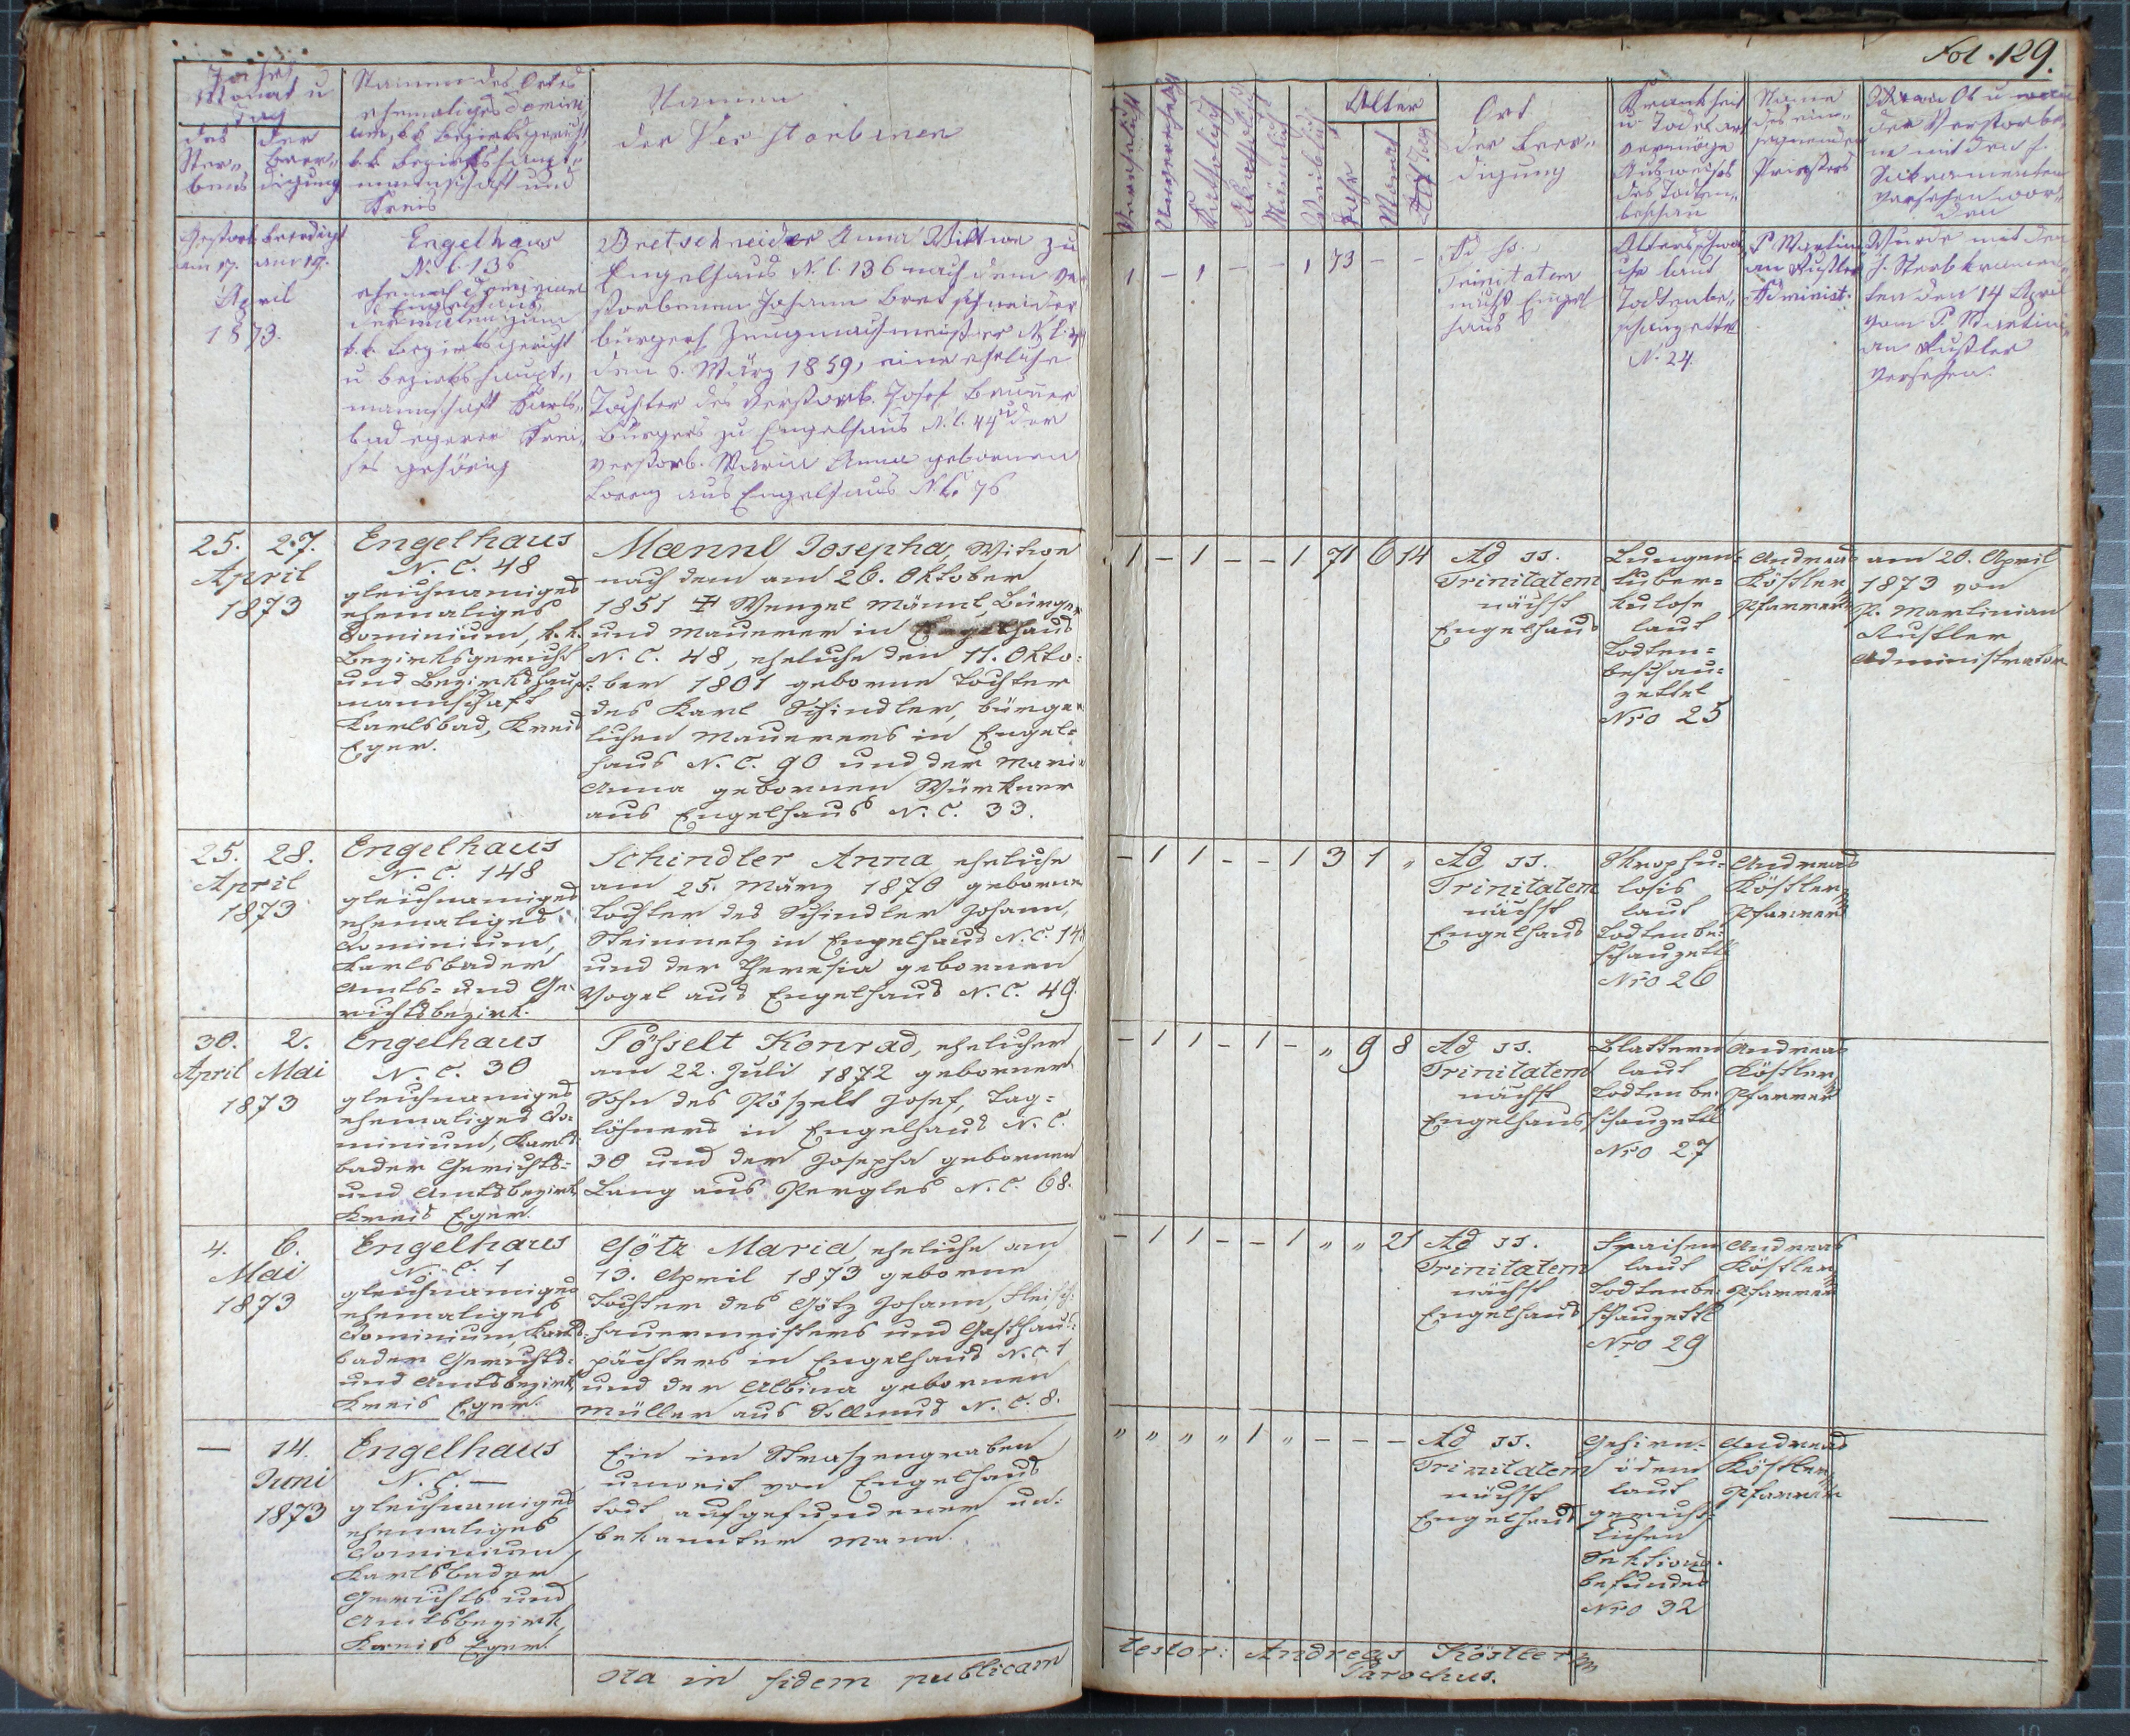 Fol. 129.
Jahr
Monat u
Tag
des
Ster„
bens
der
Beer„
digung
Namen des Ortes
ehemaliges Domini„
um, k.k. Bezirksgericht,
k.k. Bezirkshaupt„
mannschaft und
Kreis
Namen
der Verstorbenen
Verehelicht
Unverehelicht
Katholisch
Akatholisch
Männlich
Weiblich
Alter
Jahr
Monat
Tag
Ort
der Beer„
digung
Krankheit
u Todesart
vermöge
Ausweises
des Todten„
beschau
Name
des ein„
segnenden
Priesters
Ob u
der Verstorbe„
ne mit den h.
Sakramenten
versehen wor„
den
Gestorb. beerdigt
am 17. am 19.
April
1873.
Engelhaus
N. C. 136
ehemal. Dominium
Engelhaus
dermalen zum
k.k. Bezirksgericht
u Bezirkshaupt„
mannschaft Karls„
bad egerer Krei„
ses gehörig
Bretschneider Anna Wittwe zu
Engelhaus N. C. 136 nach dem ver„
storbenen Johann Bretschneider
bürgerl. Zeugmachmeister N. C.
den 6. März 1859, eine eheliche
Tochter des verstorb. Josef Brunner
Bürgers zu Engelhaus N. C. 44 u der
verstorb. Maria Anna gebornen
Lorenz aus Engelhaus N. C. 76
1 – 1 – – 1 73 – –
Ad ss.
Trinitatem
nächst Engel
haus
Altersschwä„
che laut
Todtenbe„
schauzettel
N. 24.
P. Martini„
an Rustler
Administ.
Wurde mit den
h. Sterbsakramen„
ten den 14 April
vom P. Martini„
an Rustler
versehen.
25. 27.
April
1873
Engelhaus
N. C. 48
gleichnamiges
ehemaliges
Dominium, k. k.
Bezirksgericht
und Bezirkshaupt=
mannschaft
Karlsbad, Kreis
Eger.
Mænnl Josepha, Witwe
nach dem am 26. Oktober
1851 † Wenzel Männl, Bürger
und Maurer in Engelhaus
N. C. 48, eheliche den 11. Okto=
ber 1801 geborne Tochter
des Karl Schindler, bürger
lichen Maurers in Engel=
haus N. C. 90 und der Maria
Anna gebornen Würkner
aus Engelhaus N. C. 33.
1 – 1 – – 1 71 6 14
Ad ss.
Trinitatem
nächst
Engelhaus
Lungen=
tuber=
kulose
laut
Todten=
beschau=
zettel
Nro 25
Andreas
Köstler
Pfarrer
am 20. April
1873 von
P. Martinian
Rustler
Administrator
25. 28.
April
1873
Engelhaus
N. C. 148
gleichnamiges
ehemaliges
Dominium,
Karlsbader
Amts= und Ge=
richtsbezirk.
Schindler Anna eheliche
am 25. März 1870 geborne
Tochter des Schindler Johann,
Steinmetz in Engelhaus N. C. 148
und der Theresia gebornen
Vogel aus Engelhaus N. C. 49.
– 1 1 – – 1 3 1 „
Ad ss.
Trinitatem
nächst
Engelhaus
Skrophu=
losis
laut
Todtenbe=
schauzettl
Nro 26
Andreas
Köstler
Pfarrer
30. 2.
April Mai
1873
Engelhaus
N. C. 30
gleichnamiges
ehemaliges Do=
minium, Karls=
bader Gerichts=
und Amtsbezirk,
Kreis Eger.
Pösselt Konrad, ehelicher
am 22. Juli 1872 geborner
Sohn des Pöszelt Josef, Tag=
löhners in Engelhaus N. C.
30 und der Josepha gebornen
Lang aus Pergles N. C. 68.
– 1 1 – 1 – „ 9 8
Ad ss.
Trinitatem
nächst
Engelhaus
Blattern
laut
Todtenbe=
schauzettl
Nro 27
Andreas
Köstler
Pfarrer
4. 6.
Mai
1873
Engelhaus
N. C. 1
gleichnamiges
ehemaliges
Dominium, Karls=
bader Gerichts=
und Amtsbezirk,
Kreis Eger.
Götz Maria, eheliche am
13. April 1873 geborne
Tochter des Götz Johann, Fleisch=
hauermeisters und Gasthaus=
pächters in Engelhaus N. C. 1
und der Albina gebornen
Müller aus Sollmus N. C. 8.
– 1 1 – – 1 „ „ 21
Ad ss.
Trinitatem
nächst
Engelhaus
Fraisen
laut
Todtenbe=
schauzettl
Nro 29
Andreas
Köstler
Pfarrer
— 14.
Juni
1873
Engelhaus
N. C. —
gleichnamiges
ehemaliges
Dominium
Karlsbader
Gerichts und
Amtsbezirk,
Kreis Eger.
Ein im Straszengraben
unweit von Engelhaus
todt aufgefundener un=
bekannter Mann.
„ „ „ „ 1 „ – – –
Ad ss.
Trinitatem
nächst
Engelhaus
Gehirn=
ödem
laut
gericht=
lichen
Sektions=
befundes
Nro 32
Andreas
Köstler
Pfarrer
Ita in fidem publicam
testor: Andreas Köstler
Parochus.